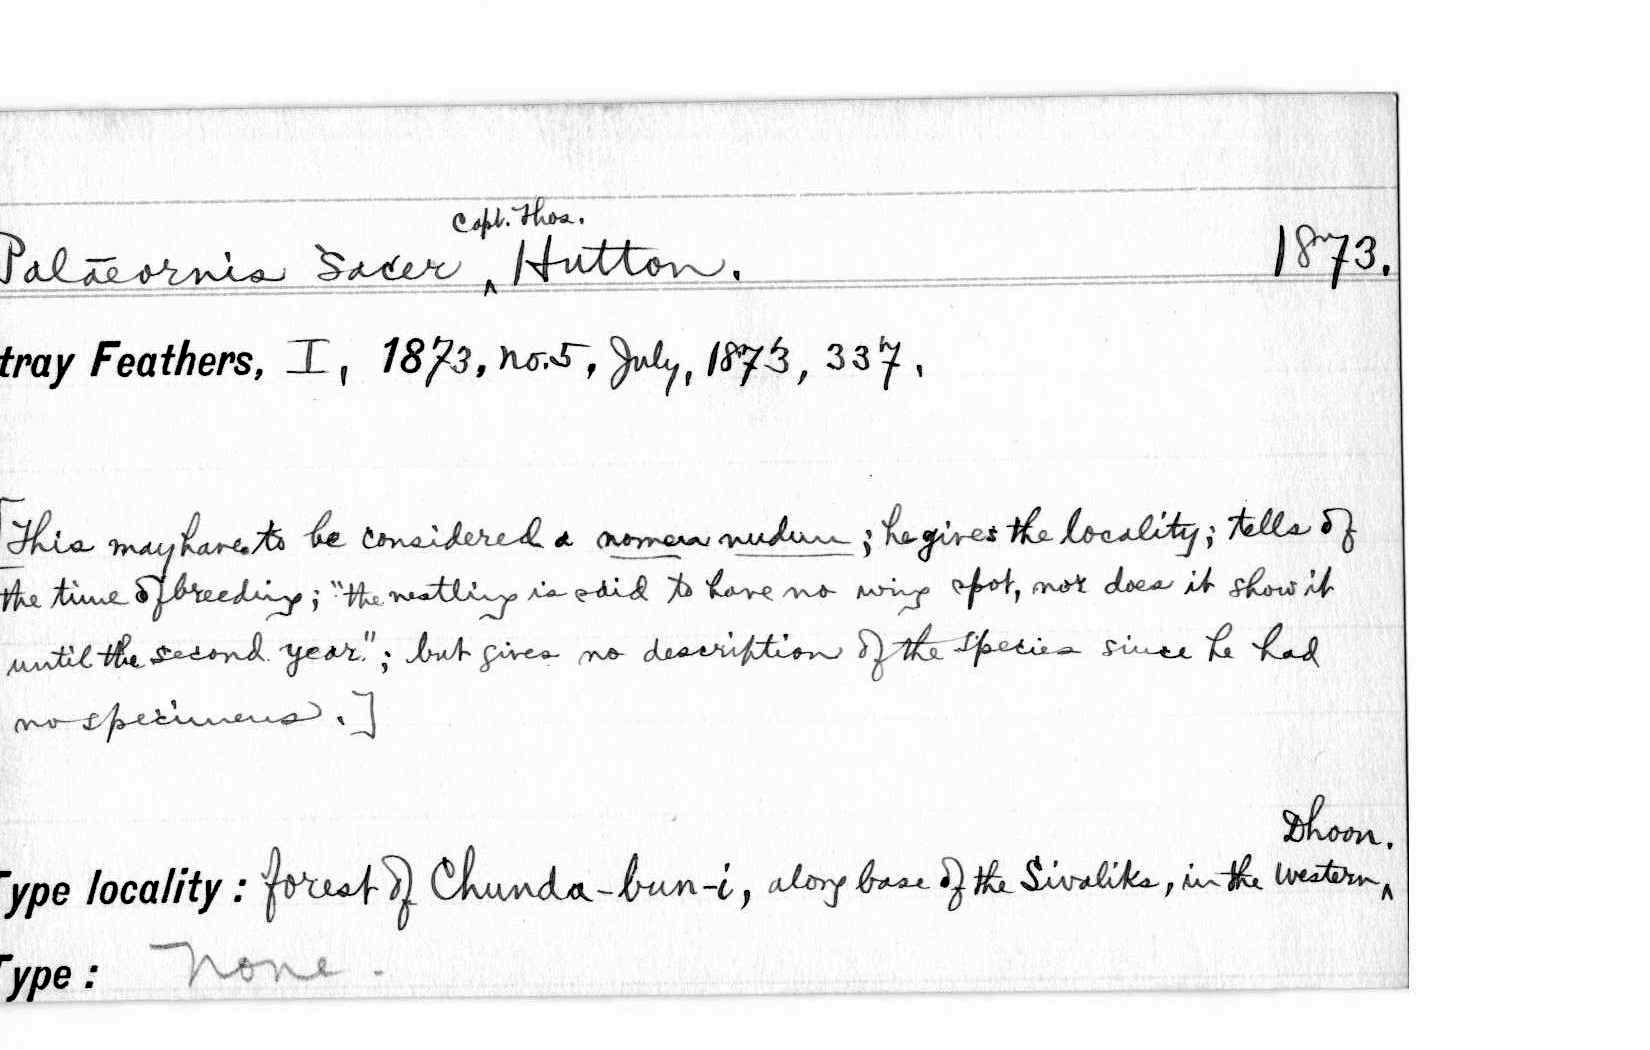 Capt. Thos.
Palaeornis sacer ^ Hutton. 1873.
tray Feathers, I, 1873, no. 5, July, 1873, 337.
[This may have to be considered a nomen nudum; he gives the locality; tells of
the time of breeding; "the nestling is said to have no wing spot, nor does it show it
until the second year"; but gives no description of the species since he had
no specimens.]
Dhoon.
Type locality: forest of Chunda-bun-i, along base of the Sivaliks, in the western ^
Type: None.